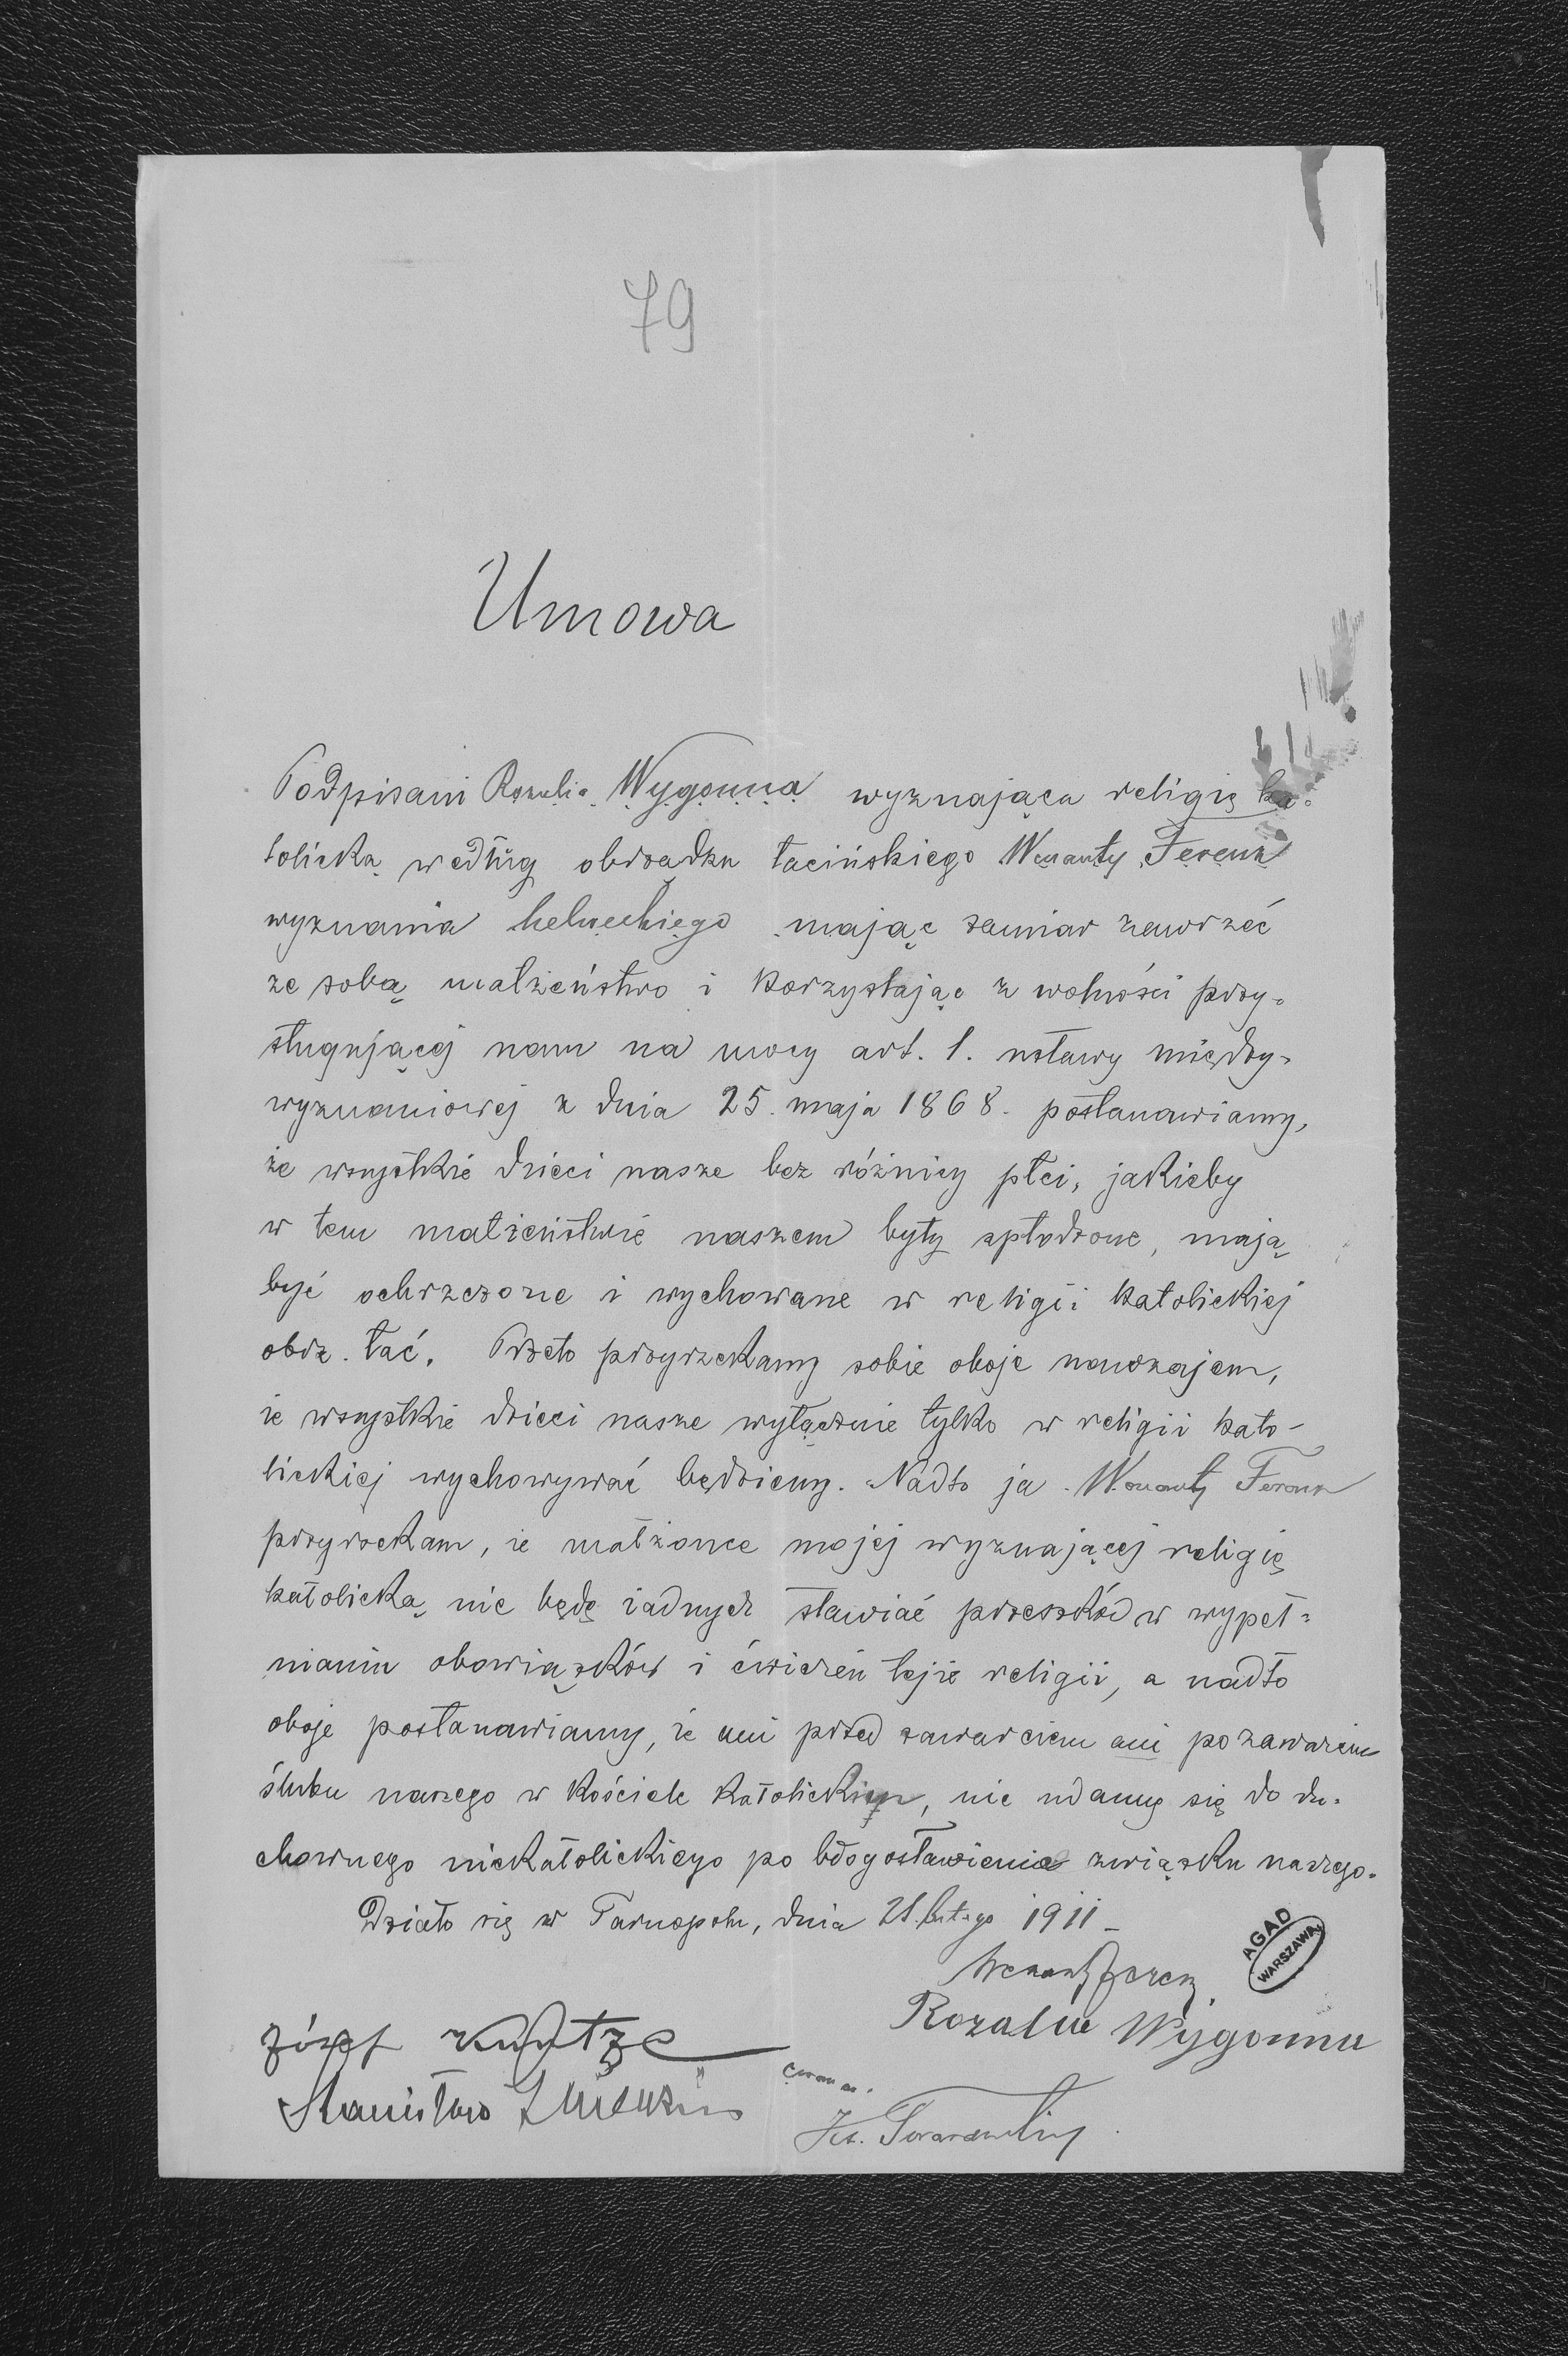 79
Umowa
Podpisani Rozalia Wygonna wyznająca religię ka=
tolicką według obrządku łacińskiego Wenanty Ferenz
wyznania helweckiego mając zamiar zawrzeć
ze sobą małżeństwo i korzystając z wolności przy=
sługującej nam na mocy art. 1. ustawy między=
wyznaniowej z dnia 25. maja 1868. postanawiamy,
że wszystkie dzieci nasze bez różnicy płci, jakieby
w tem małżeństwie naszem były spłodzone, mają
być ochrzczone i wychowane w religii katolickiej
obrz. łać. Przeto przyrzekamy sobie oboje nawzajem,
że wszystkie dzieci nasze wyłącznie tylko w religii kato-
lickiej wychowywać będziemy. Nadto ja Wenanty Ferenz
przyrzekam, że małżonce mojej wyznającej religię
katolicką nie będę żadnych stawiać przeszkód w wypeł=
nianiu obowiązków i ćwiczeń tejże religii, a nadto
oboje postanawiamy, że ani przed zawarciem ani po zawarciu
ślubu naszego w kościele katolickim, nie udamy się do du=
chownego niekatolickiego po błogosławienie związku naszego.
Działo się w Tarnopolu, dnia 21. lutego 1911
AGAD
WARSZAWA
Wenanty Ferenz
Rozalia Wygonna
Józef
Stanisław